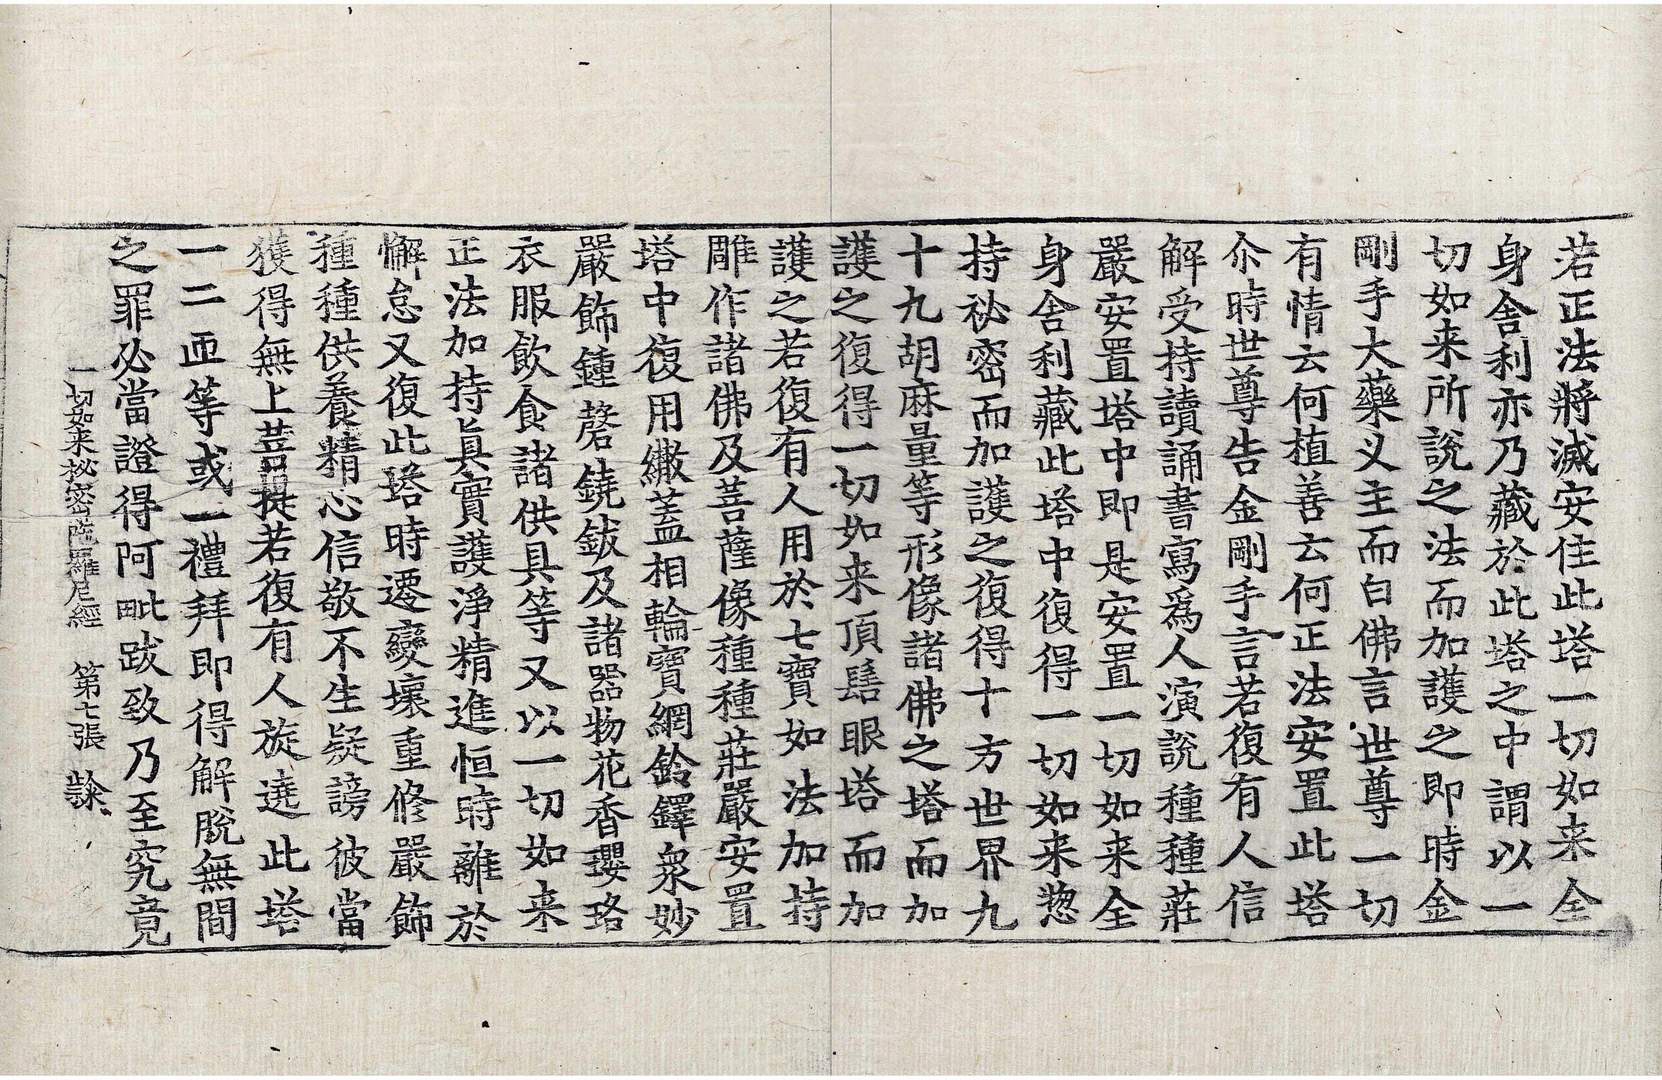 若正法將滅安住此塔一切如来全
身舍利亦乃藏於此塔之中謂以一
切如来所說之法而加護之即時金
剛手大藥义主而白佛言世尊一切
有情云何植善云何正法安置此塔
尒時世尊告金剛手言若復有人信
解受持讀誦書寫爲人演說種種莊
嚴安置塔中即是安置一切如来全
身舍利藏此塔中復得一切如来惣
持秘密而加護之復得十方世界九
十九胡麻量等形像諸佛之塔而加
護之復得一切如来頂髻眼塔而加
護之若復有人用於七寶如法加持
雕作諸佛及菩薩像種種莊嚴安置
塔中復用繖蓋相輪寶網鈴鐸衆妙
嚴飾鍾磬鐃鈸及諸器物花香瓔珞
衣服飲食諸供具等又以一切如来
正法加持真實護淨精進恒時離於
懈怠又復此塔時遷變壞重修嚴飾
種種供養精心信敬不生疑謗彼當
獲得無上菩提若復有人旋遶此塔
一二匝等或一禮拜即得解脫無間
之罪必當證得阿毗跋致乃至究竟
一切如来秘密陁羅尼經 第七張